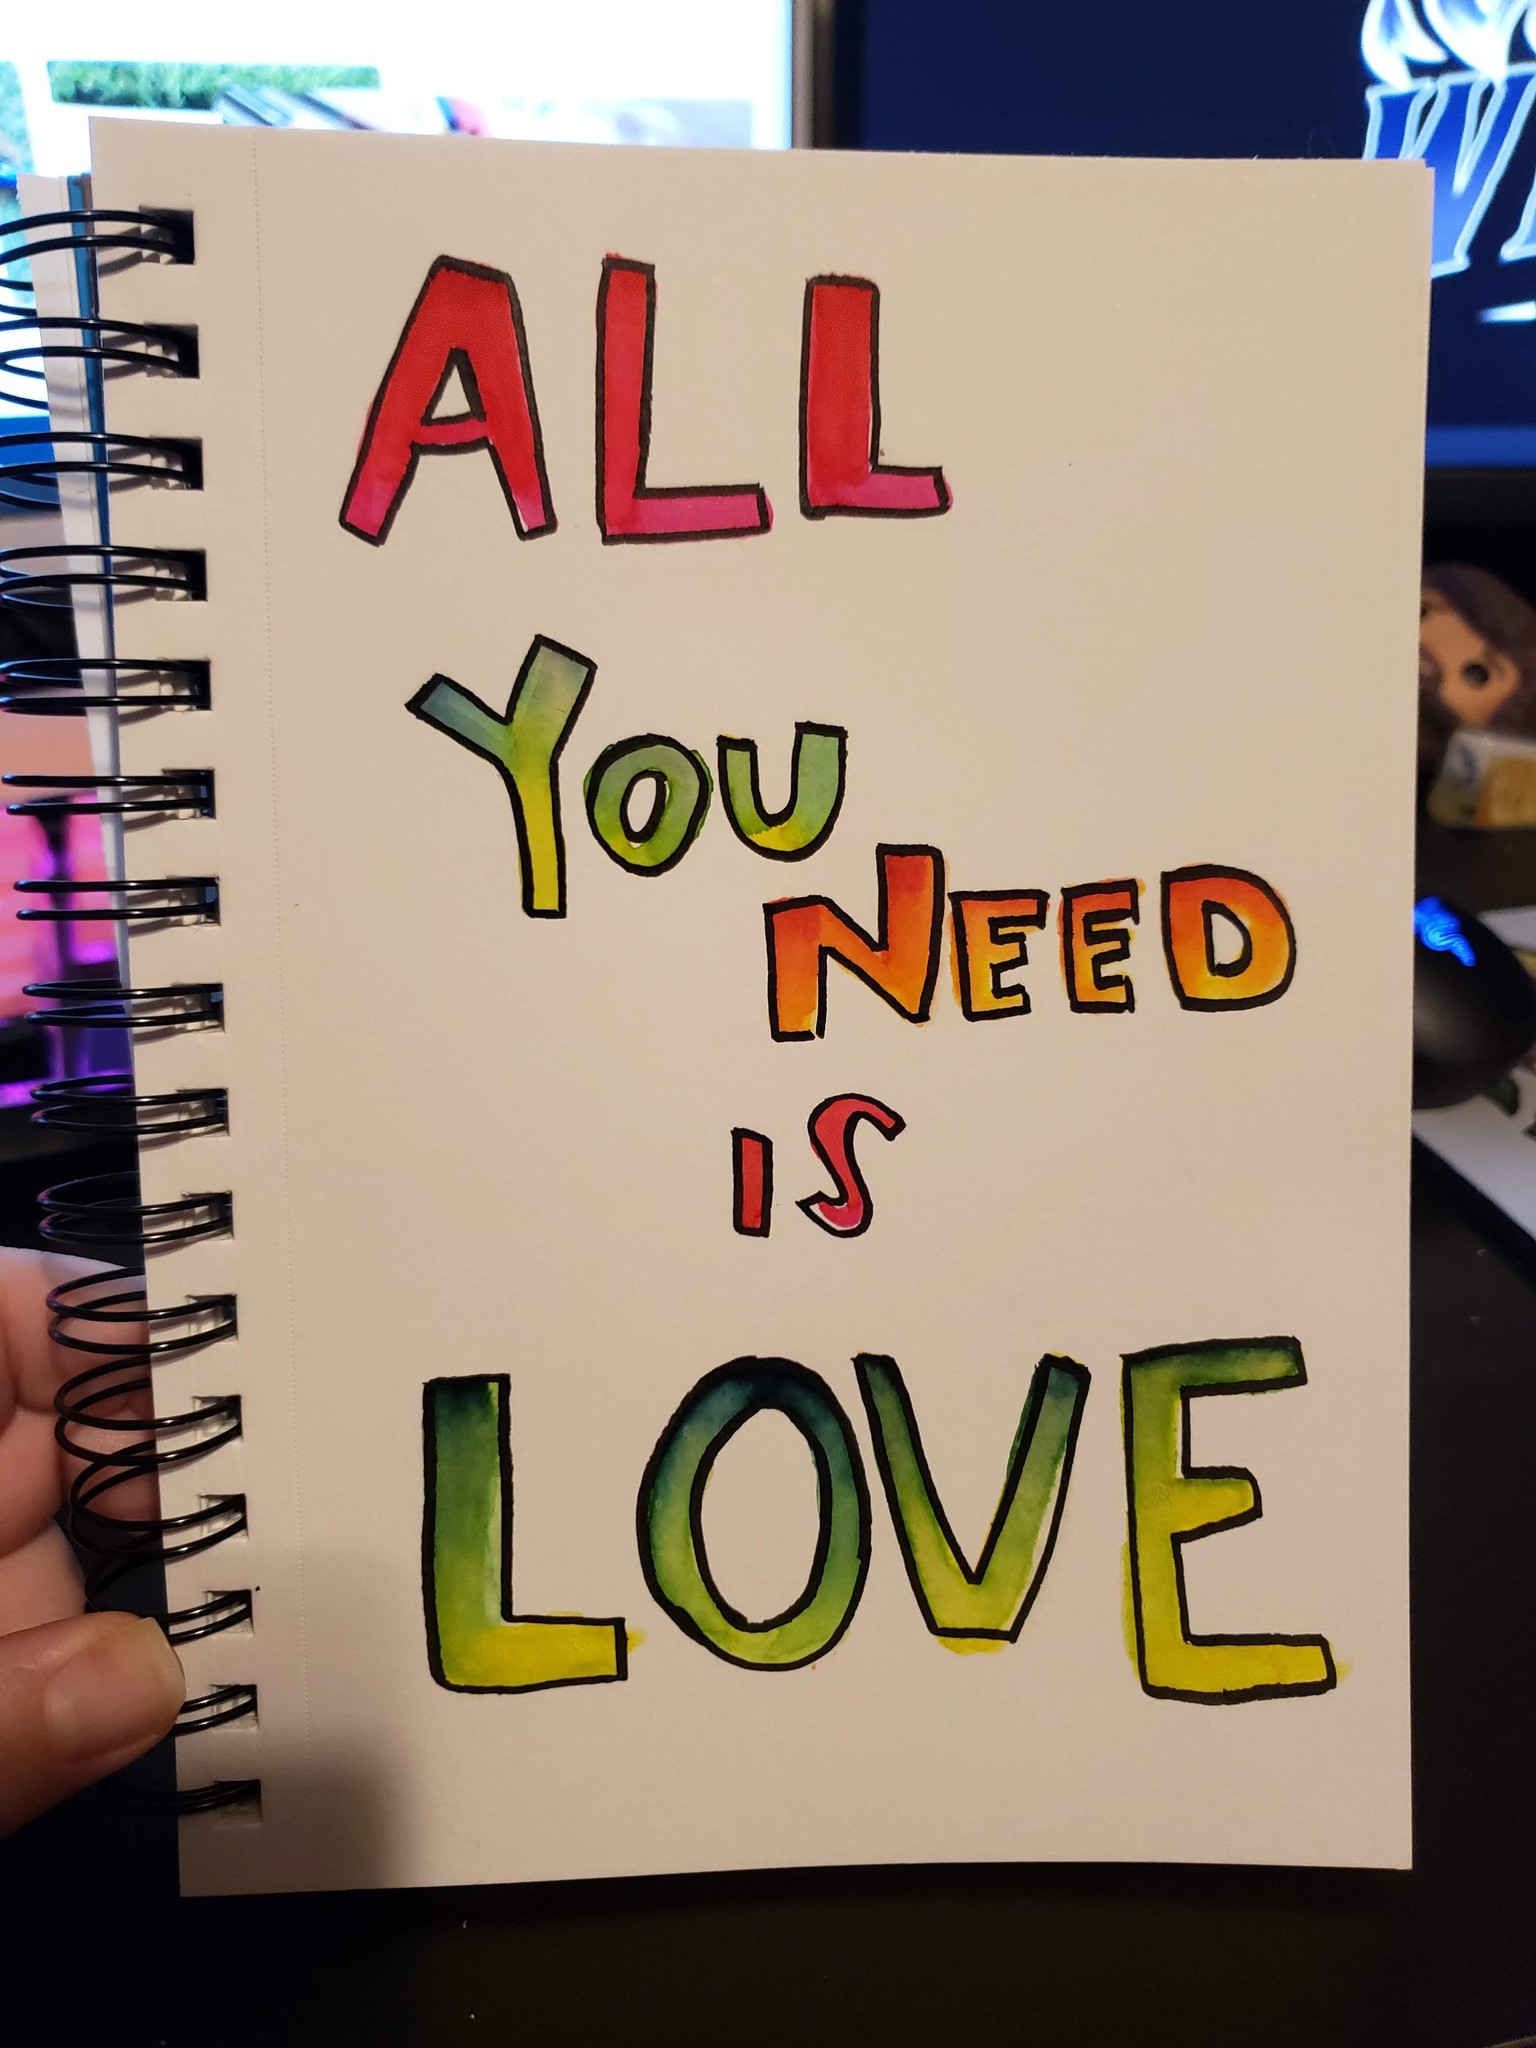 ALL
YOU
NEED
IS
LOVE